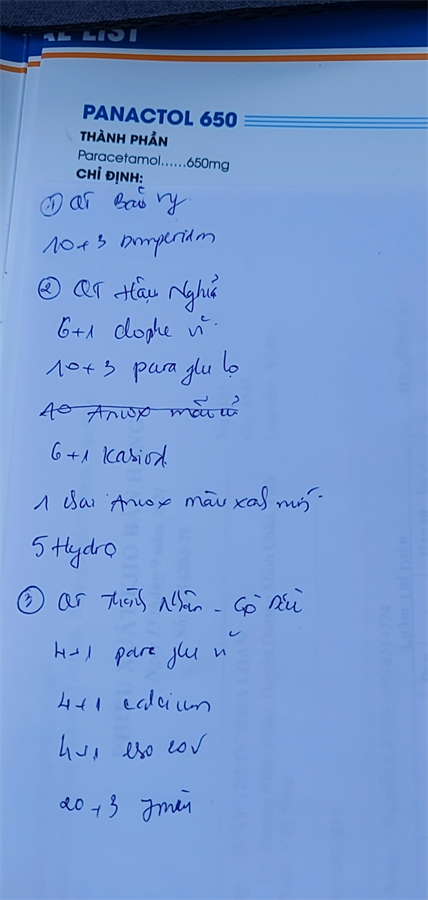 AL LIST
PANACTOL 650
THÀNH PHẦN
Paracetamol......650mg
CHỈ ĐỊNH:
① QT Bảo Vy
10+3 Domperidon
② QT Hậu Nghĩa
6+1 clophe vỉ
10+3 para glu lọ
10 Amox mẫu cũ
6+1 Kasiod
1 chai Amox màu xanh mới
5 Hydro
③ QT Thành Nhân - Gò Dầu
4+1 para glu vỉ
4+1 calcium
4+1 eso cov
20+3